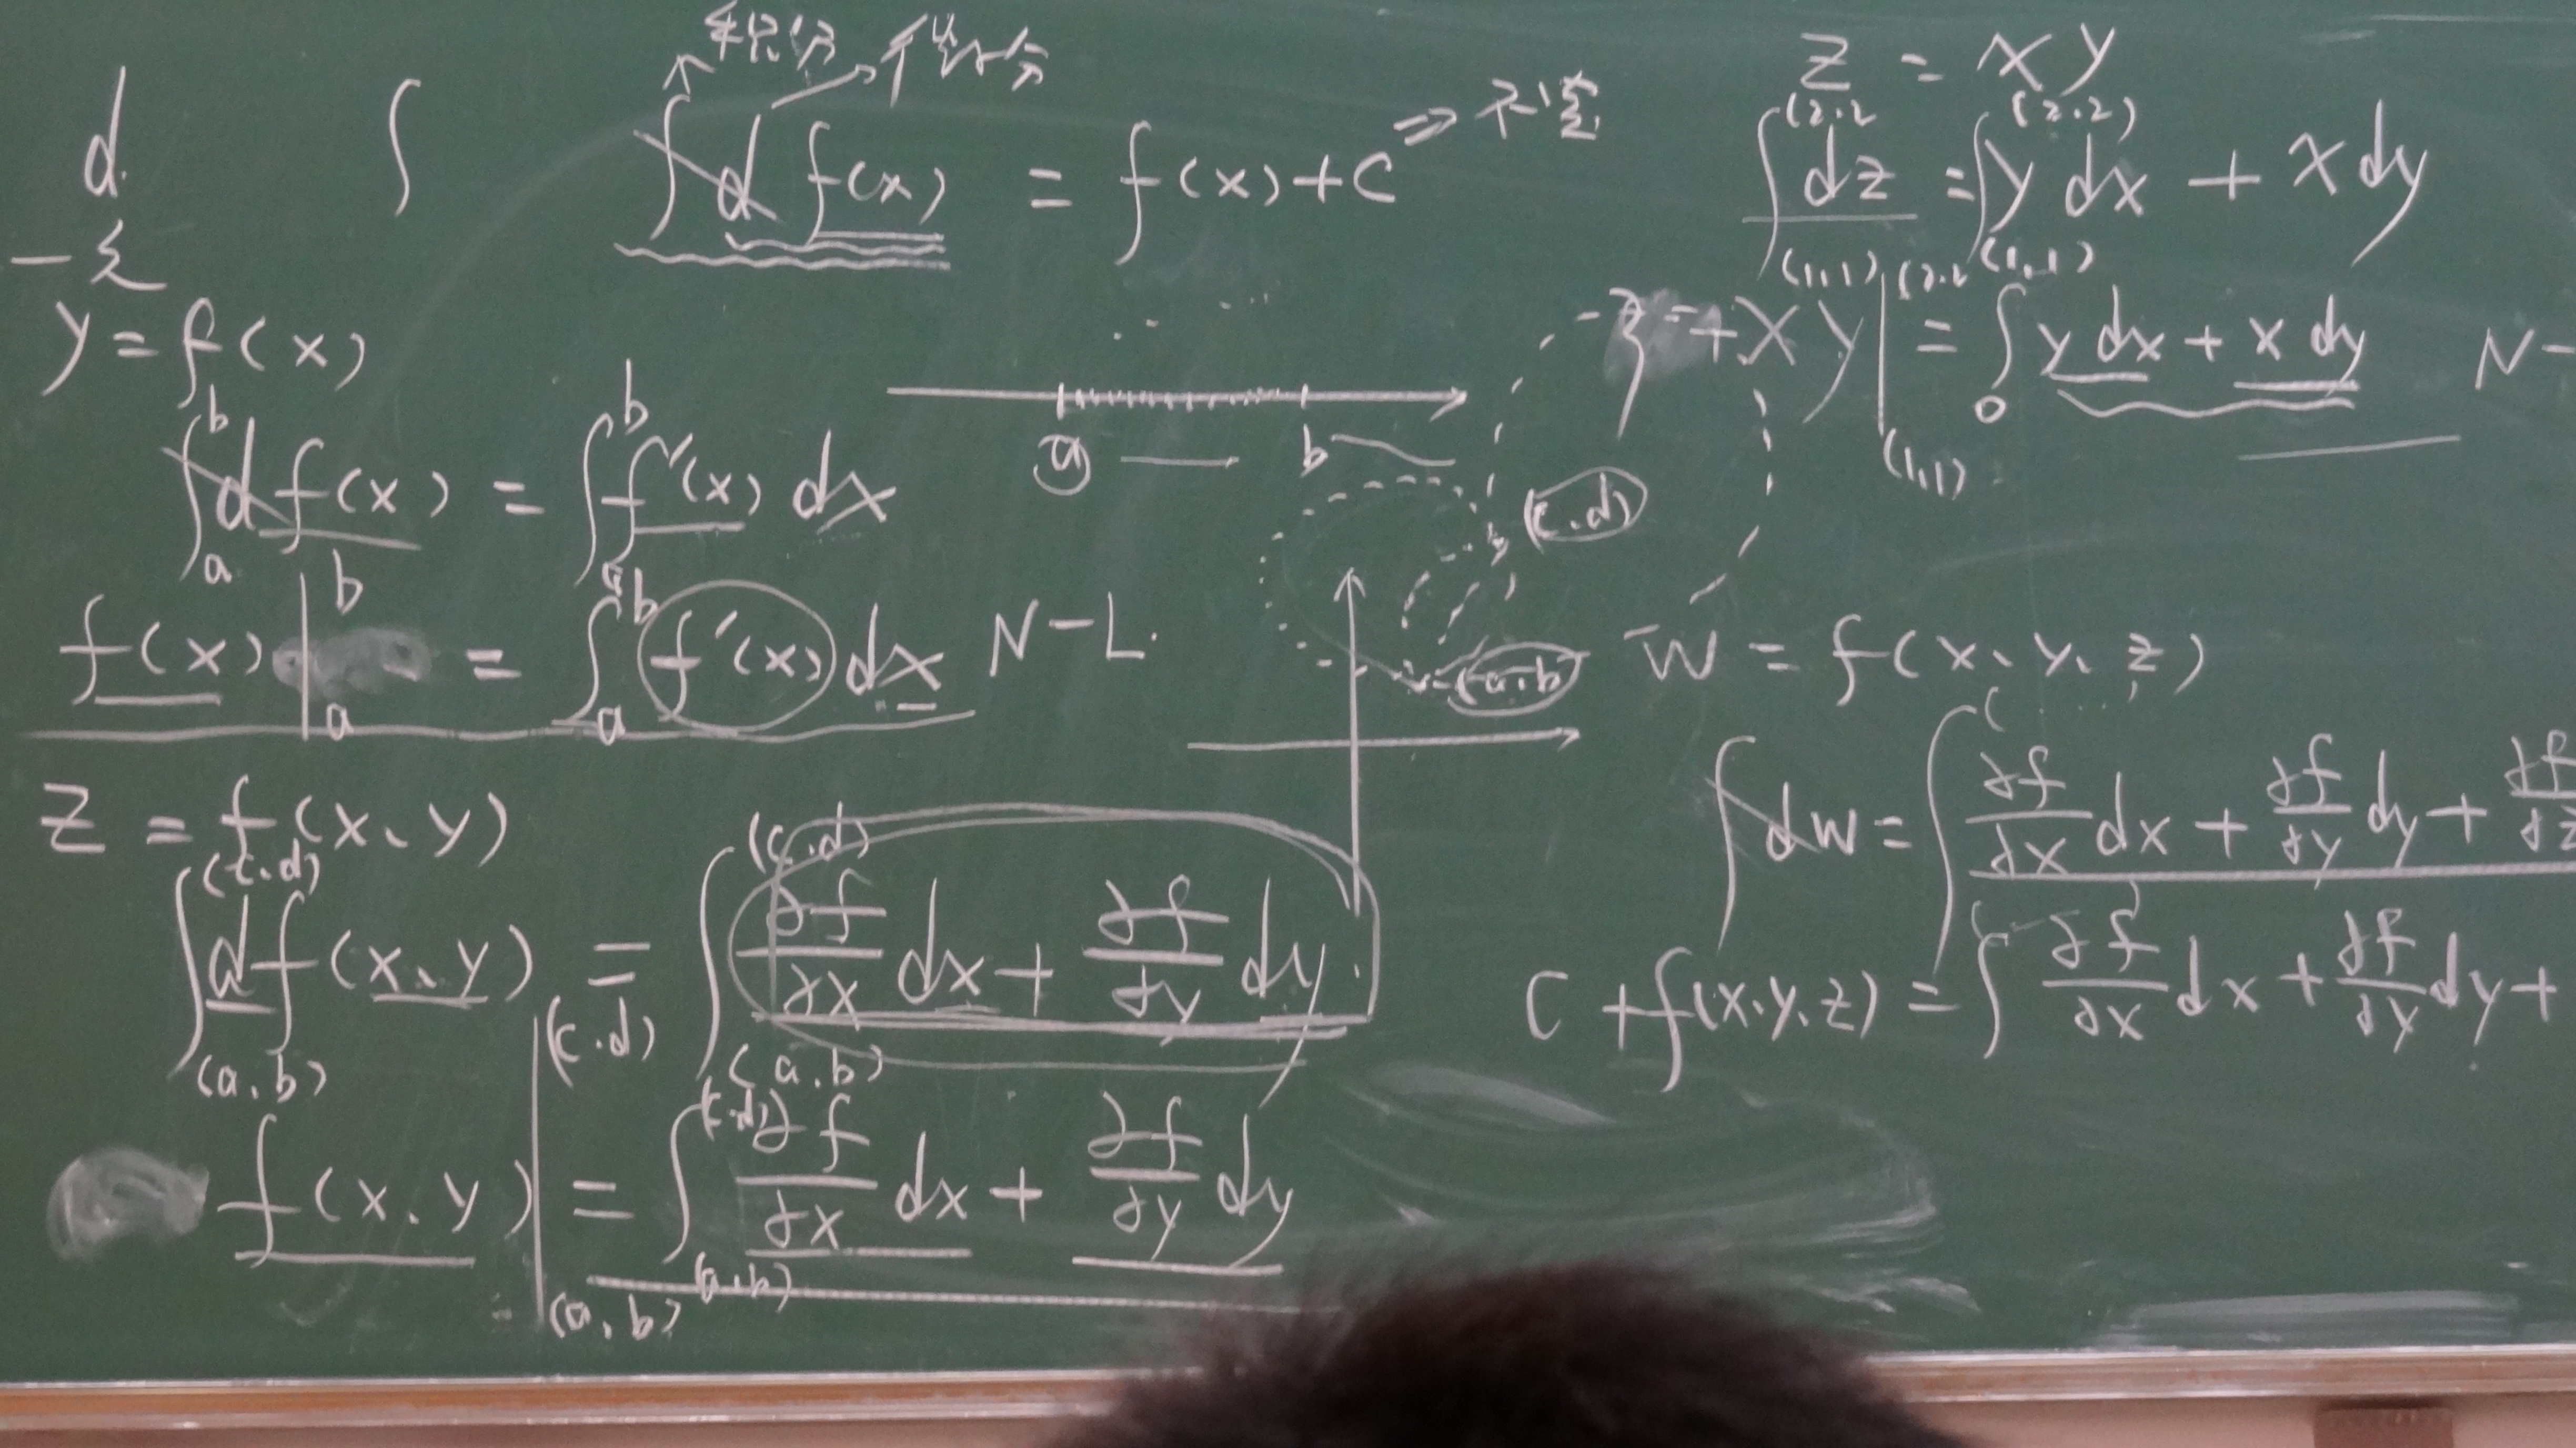 d ∫ ∫ d f(x) = f(x) + C ⇒ 不定
积分 微分
一元
y = f(x)
∫_a^b d f(x) = ∫_a^b f'(x) dx
f(x) |_a^b = ∫_a^b f'(x) dx N-L.
a b
(c.d)
(a.b)
z = f(x、y)
∫_(a.b)^(c.d) d f(x、y) = ∫_(a.b)^(c.d) ∂f/∂x dx + ∂f/∂y dy
f(x、y) |_(a,b)^(c.d) = ∫_(a.b)^(c.d) ∂f/∂x dx + ∂f/∂y dy
z = xy
∫_(1,1)^(2.2 dz = ∫_(1,1)^(2.2) y dx + x dy
xy |_(1,1)^(2.2 = ∫ y dx + x dy N-
W = f(x、y、z)
∫ dW = ∫ ∂f/∂x dx + ∂f/∂y dy + ∂f/∂z
C + f(x,y,z) = ∫ ∂f/∂x dx + ∂f/∂y dy +